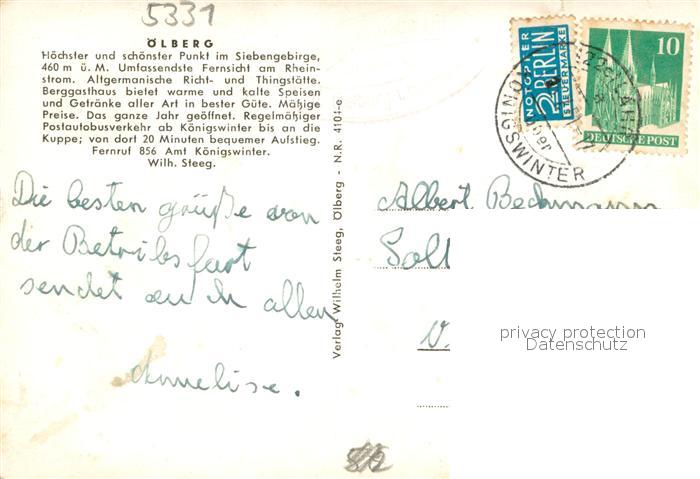 5331
ÖLBERG
Höchster und schönster Punkt im Siebengebirge,
460 m ü. M. Umfassendste Fernsicht am Rhein-
strom. Altgermanische Richt- und Thingstätte.
Berggasthaus bietet warme und kalte Speisen
und Getränke aller Art in bester Güte. Mäßige
Preise. Das ganze Jahr geöffnet. Regelmäßiger
Postautobusverkehr ab Königswinter bis an die
Kuppe; von dort 20 Minuten bequemer Aufstieg.
Fernruf 856 Amt Königswinter.
Wilh. Steeg.
Die besten grüße von
der Betriebsfart
sendet euch allen
Annelise.
Verlag: Wilhelm Steeg, Ölberg - N.R. 4101-e
NOTOPFER
2 BERLIN
STEUERMARKE
10
DEUTSCHE POST
GSWINTER
Albert Beckmann
V.
privacy protection
Datenschutz